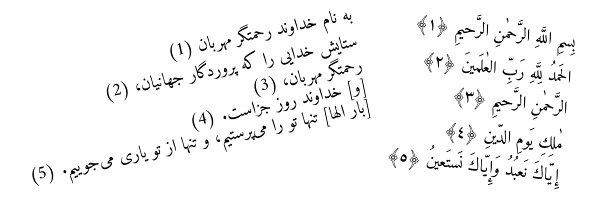 بِسمِ اللَّهِ الرَّحمٰنِ الرَّحيمِ ﴿۱﴾
الحَمدُ لِلَّهِ رَبِّ العٰلَمينَ ﴿۲﴾
الرَّحمٰنِ الرَّحيمِ ﴿۳﴾
مٰلِكِ يَومِ الدّينِ ﴿۴﴾
إِيّاكَ نَعبُدُ وَإِيّاكَ نَستَعينُ ﴿۵﴾
به نام خداوند رحمتگر مهربان (1)
ستایش خدایی را که پروردگار جهانیان، (2)
رحمتگر مهربان، (3)
[و] خداوند روز جزاست. (4)
[بار الها] تنها تو را می‌پرستیم، و تنها از تو یاری می‌جوییم. (5)